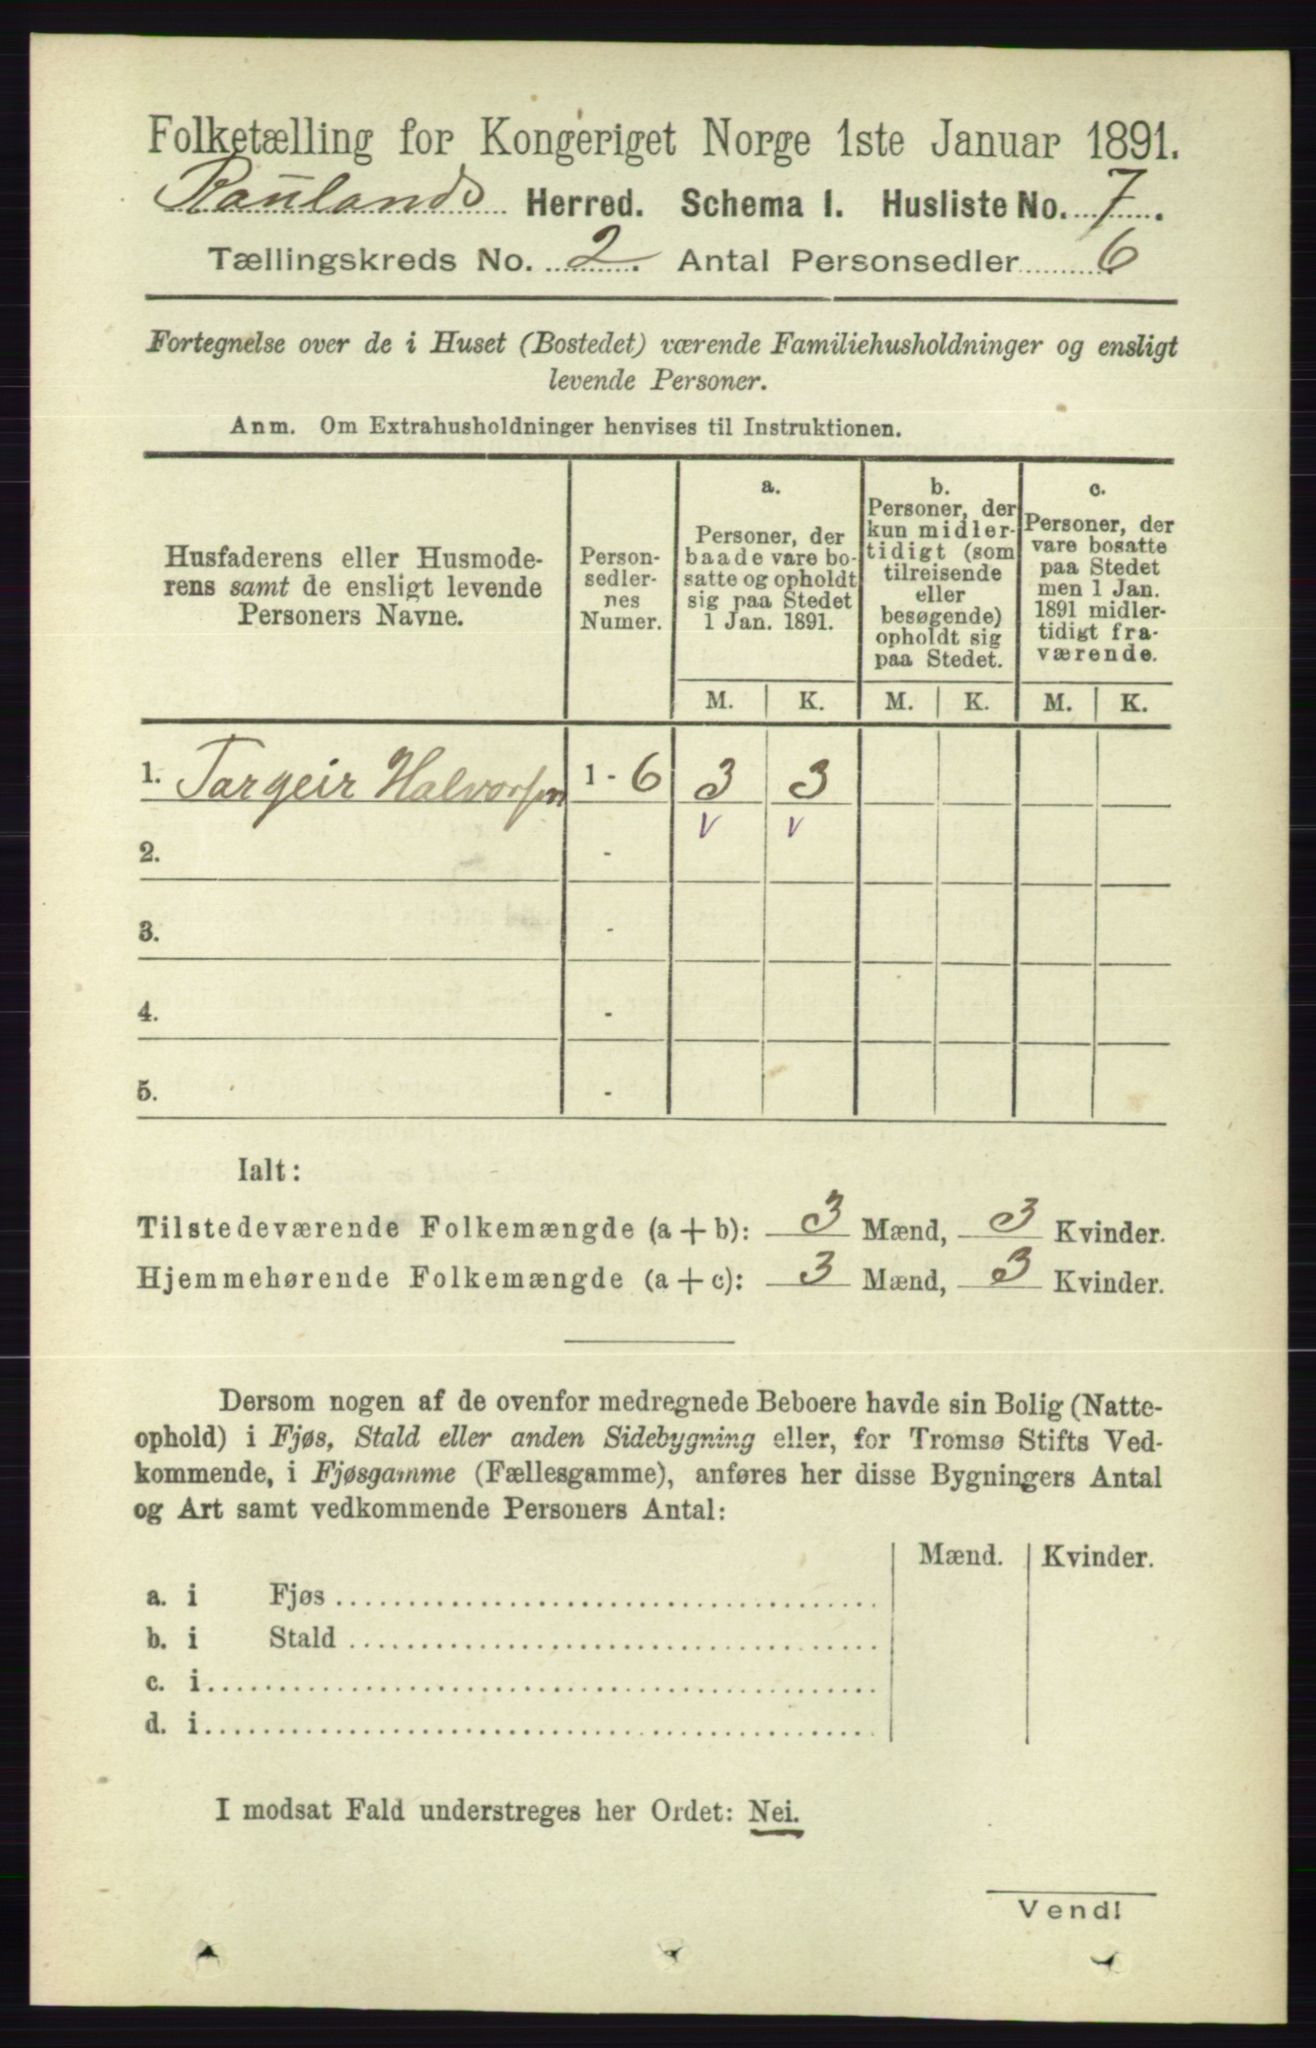 Folketælling for Kongeriget Norge 1ste Januar 1891.
Raulands Herred. Schema I. Husliste No. 7.
Tællingskreds No. 2. Antal Personsedler 6
Fortegnelse over de i Huset (Bostedet) værende Familiehusholdninger og ensligt
levende Personer.
Anm. Om Extrahusholdninger henvises til Instruktionen.
Husfaderens eller Husmode-
rens samt de ensligt levende
Personers Navne.
Person-
sedler-
nes
Numer.
a.
Personer, der
baade vare bo-
satte og opholdt
sig paa Stedet
1 Jan. 1891.
b.
Personer, der
kun midler-
tidigt (som
tilreisende
eller
besøgende)
opholdt sig
paa Stedet.
c.
Personer, der
vare bosatte
paa Stedet
men 1 Jan.
1891 midler-
tidigt fra-
værende.
M. K. M. K. M. K.
1. Targeir Halvorsen 1 - 6 3 3
v v
2. -
3. -
4. -
5. -
Ialt:
Tilstedeværende Folkemængde (a + b): 3 Mænd, 3 Kvinder.
Hjemmehørende Folkemængde (a + c): 3 Mænd, 3 Kvinder.
Dersom nogen af de ovenfor medregnede Beboere havde sin Bolig (Natte-
ophold) i Fjøs, Stald eller anden Sidebygning eller, for Tromsø Stifts Ved-
kommende, i Fjøsgamme (Fællesgamme), anføres her disse Bygningers Antal
og Art samt vedkommende Personers Antal:
Mænd. Kvinder.
a. i Fjøs
b. i Stald
c. i
d. i
I modsat Fald understreges her Ordet: Nei.
Vend!